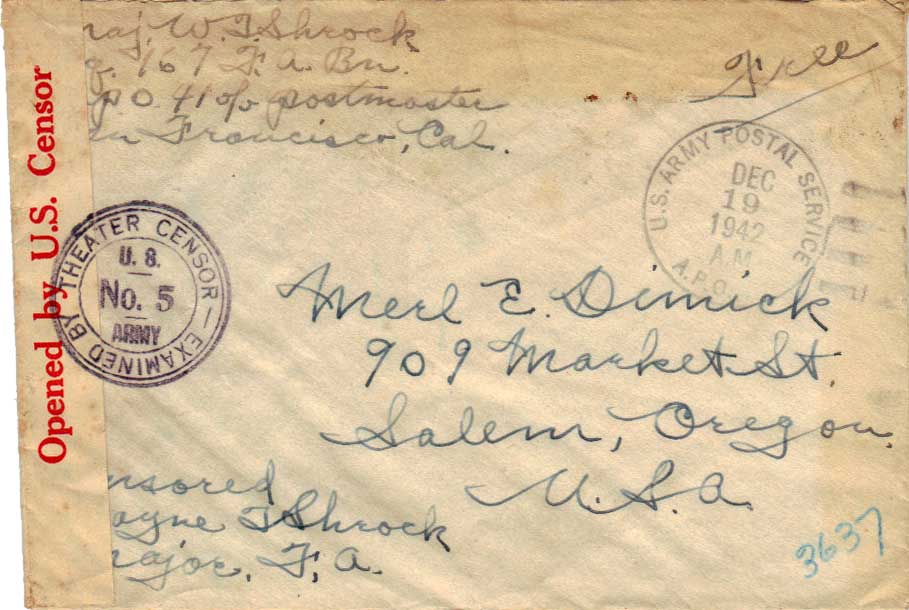 Maj. W. T. Shrock
167 F. A. Bn.
A.P.O. 41 c/o postmaster
San Francisco, Cal.
Free
U.S. ARMY POSTAL SERVICE
DEC
19
1942
A M
A.P.O.
Opened by U.S. Censor
EXAMINED BY THEATER CENSOR
U. S.
No. 5
ARMY
Merl E. Dimick
909 Market St.
Salem, Oregon.
U.S.A.
nsored
ayne T Shrock
major, F.A.
3637